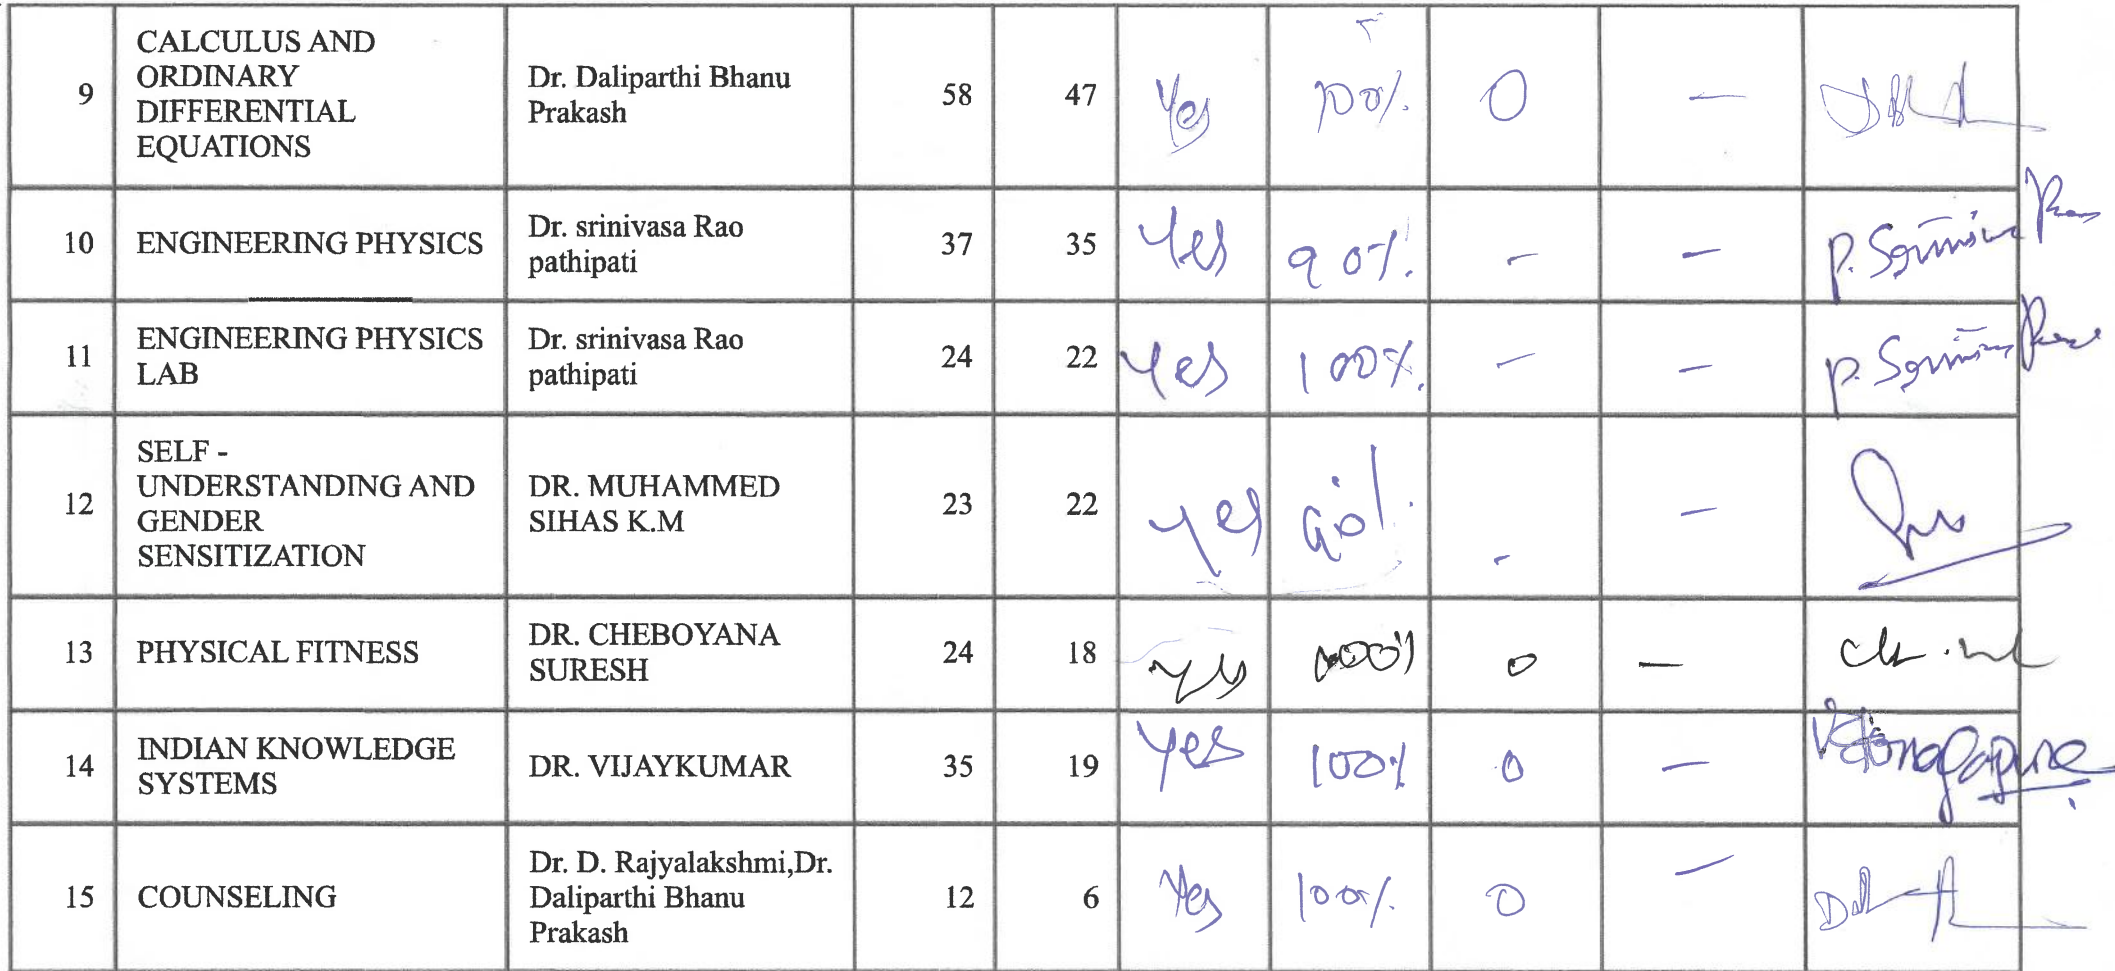 9 CALCULUS AND ORDINARY DIFFERENTIAL EQUATIONS Dr. Daliparthi Bhanu Prakash 58 47 Yes 100% 0 —
10 ENGINEERING PHYSICS Dr. srinivasa Rao pathipati 37 35 Yes 90%. - —
11 ENGINEERING PHYSICS LAB Dr. srinivasa Rao pathipati 24 22 Yes 100%. — —
12 SELF - UNDERSTANDING AND GENDER SENSITIZATION DR. MUHAMMED SIHAS K.M 23 22 yes - —
13 PHYSICAL FITNESS DR. CHEBOYANA SURESH 24 18 yes 100% 0 —
14 INDIAN KNOWLEDGE SYSTEMS DR. VIJAYKUMAR 35 19 Yes 100% 0 —
15 COUNSELING Dr. D. Rajyalakshmi,Dr. Daliparthi Bhanu Prakash 12 6 Yes 100%. 0 —